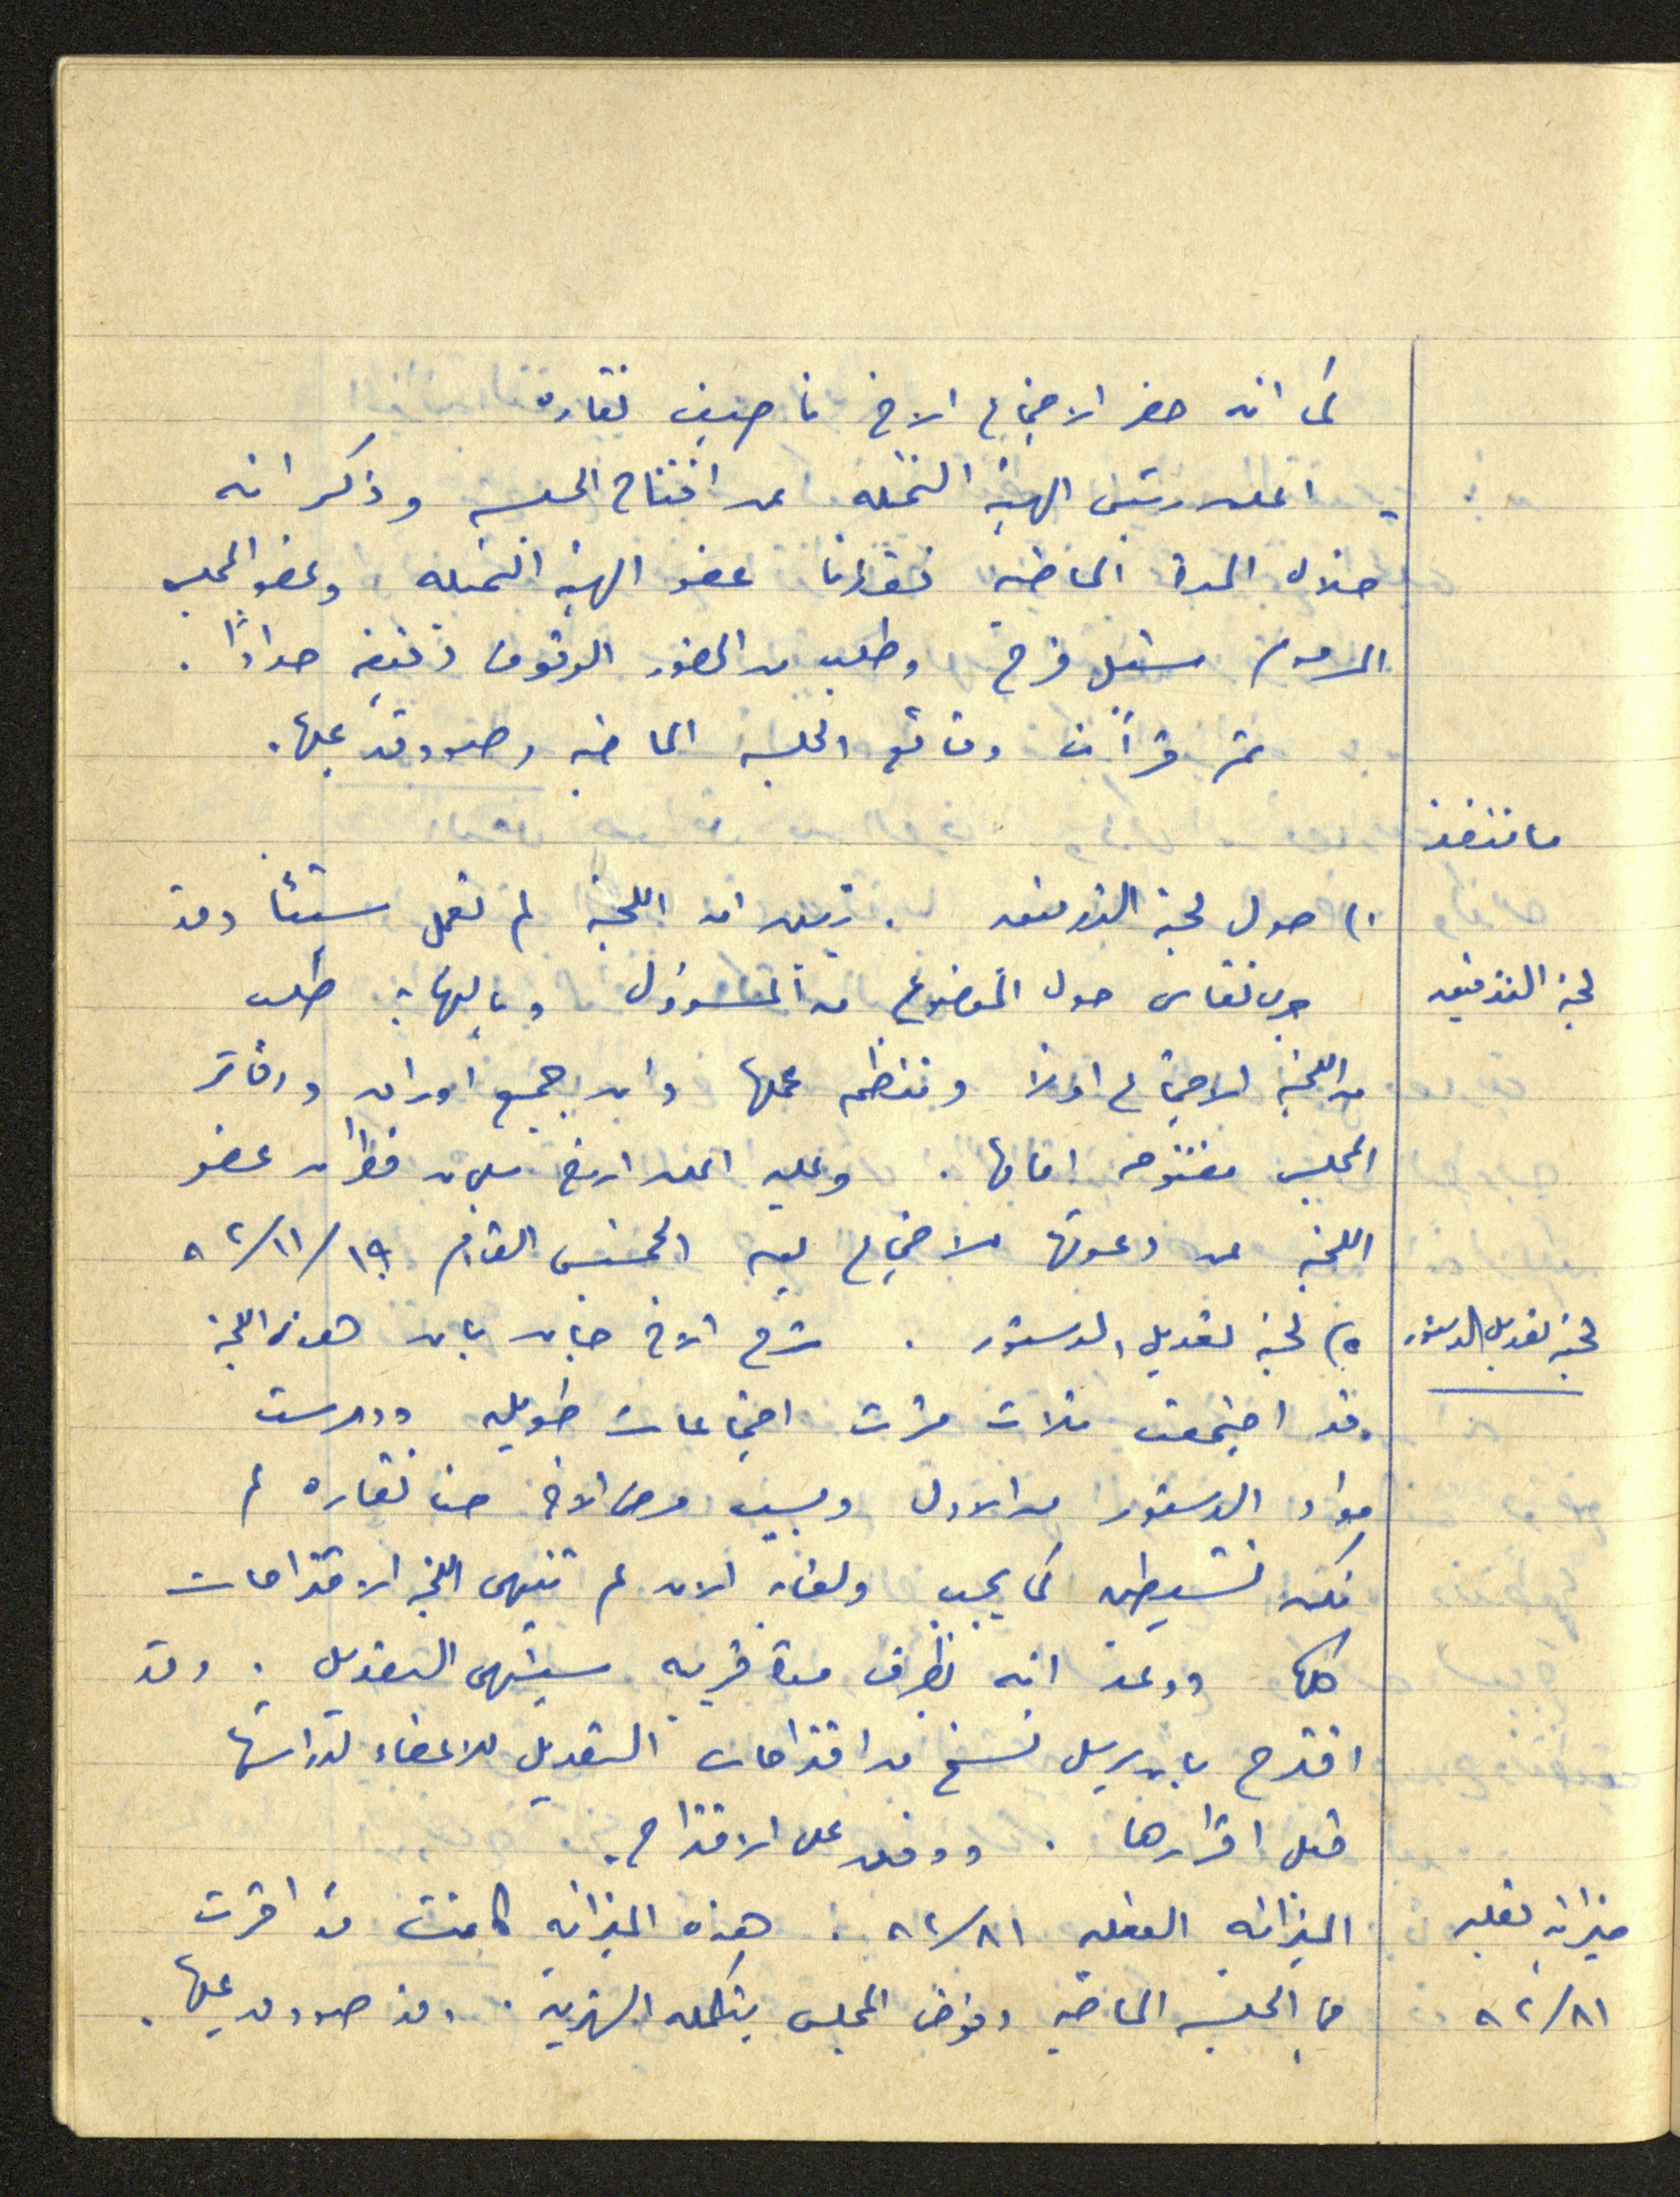 كما انه حضر الاجتماع الاخ ناصيف نقاره
- اعلن رئيس الهيئة التمثيله عن افتتاح الجلسه وذكر انه
خلال المدة الماضية فقدنا عضو الهيئه التمثيله وعضو المجلس
المرحوم ميشيل فرح وطلب من الحضور الوقوف دقيقه حدادًا .
تم قرأت وقائع الجلسه الماضيه وصودق عليها .
ما تنفذ
لجنة التدقيق
١) حول لجنة التدقيق . تبين ان اللجنة لم تعمل شيئاً وقد
جرى نقاش حول الموضوع من المسؤول وبالنهاية طلب
من اللجنة الاجتماع اولاً وتنظيم عملها وان جميع اوراق ودفاتر
المجلس مفتوحه امامها . وعليه اعلن قطران عضو
اللجنه عن دعوتها لاجتماع يوم الخميس القادم ١٩/١١/٨٢
لجنة تعديل الدستور
٢) لجنة تعديل الدستور . شرح الاخ بان هذه اللجنة
قد اجتمعت ثلاث مرات اجتماعات طويله ودرست
مواد الدستور من الاول وبسبب مرض الاخ حنا نقاره لم
تكن نشيطه كما يجب ولغاية الان لم تنهي اللجنه الاقتراحات
كلها ووعد انه بظرف مدة قريبه سينتهي التعديل . وقد
اقترح بان يرسل نسخ من اقتراحات التعديل للاعضاء لدراستها
قبل اقرارها . ووفق على الاقتراح .
ميزانية فعليه
٨٢/٨١
الميزانيه الفعليه ٨٢/٨١ : هذه الميزانيه كانت قد اقرت
في الجلسه الماضيه وفوض المجلس وقد صودق عليها .